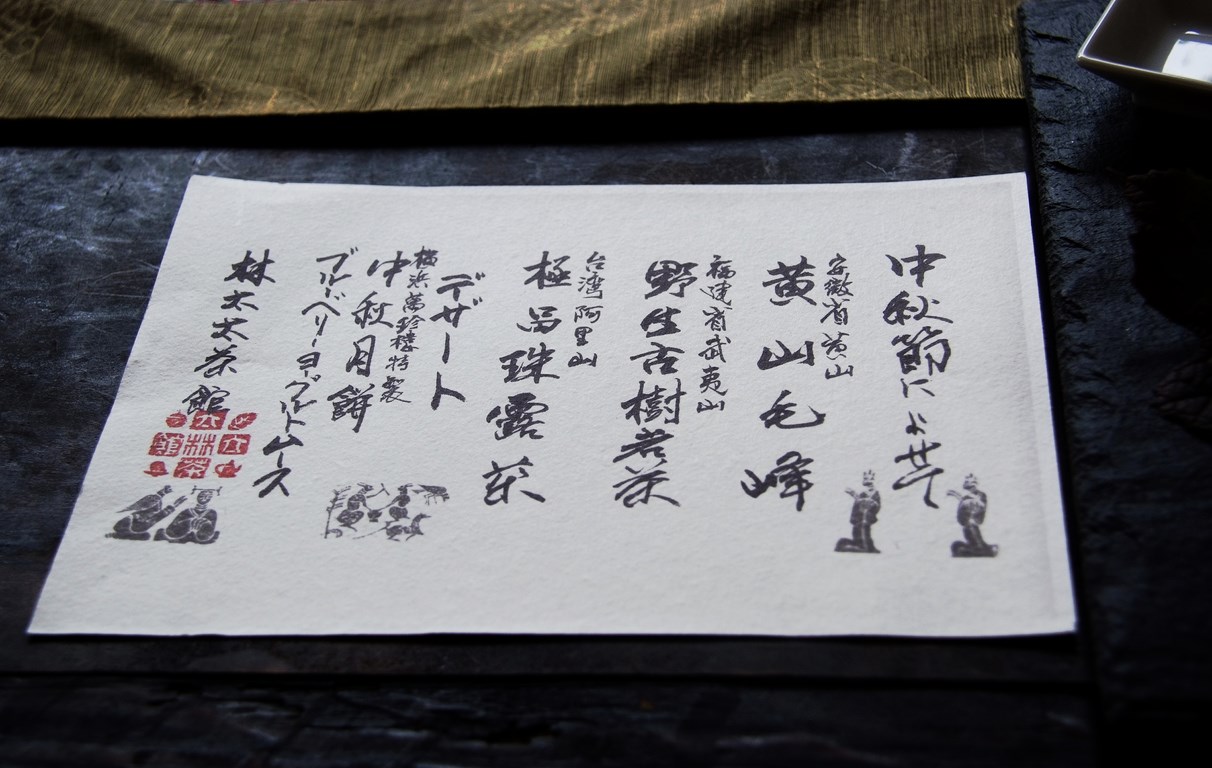 中秋節によせて
安徽省黄山
黄山毛峰
福建省武夷山
野生古樹岩茶
台湾阿里山
極品珠露茶
デザート
横浜萬珍樓特製
中秋月餅
ブルーベリーヨーグルトムース
林太太茶館